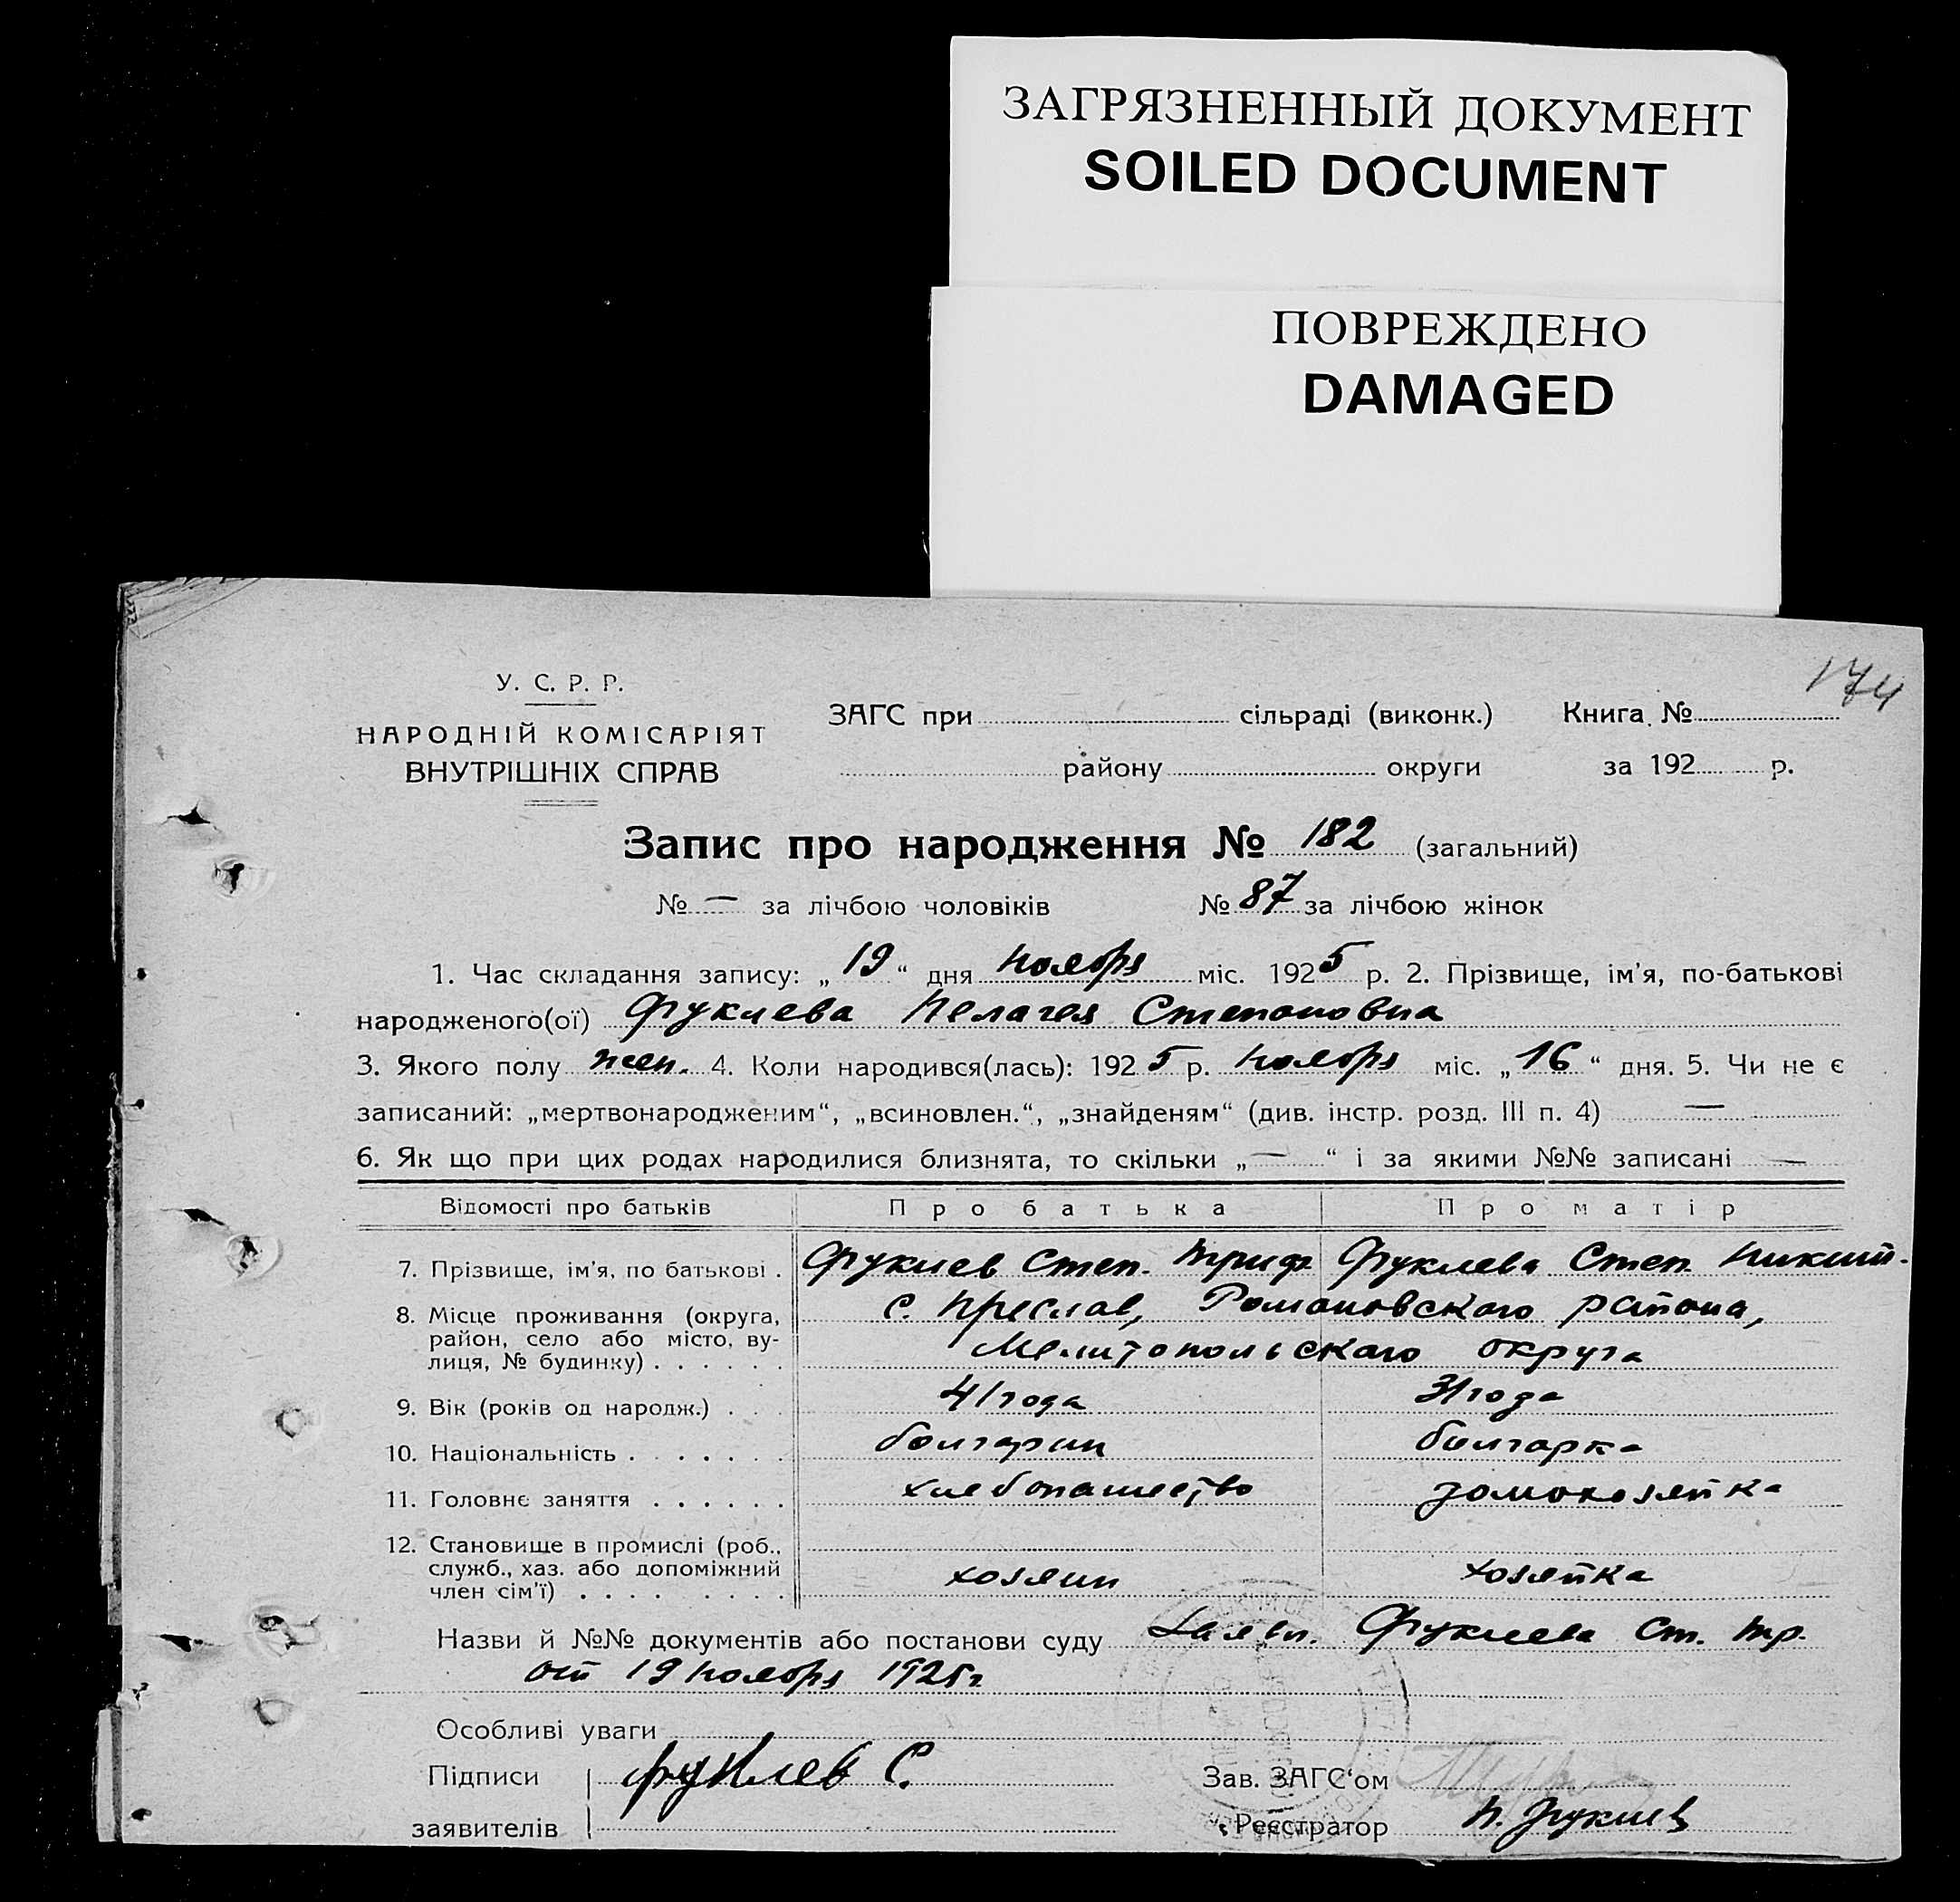 ЗАГРЯЗНЕННЫЙ ДОКУМЕНТ
SOILED DOCUMENT
ПОВРЕЖДЕНО
DAMAGED
174
У. С. Р. Р.
НАРОДНІЙ КОМІСАРІЯТ
ВНУТРІШНІХ СПРАВ
ЗАГС при сільраді (виконк.) Книга №
району округи за 192 р.
Запис про народження № 182 (загальний)
№ — за лічбою чоловіків № 87 за лічбою жінок
1. Час складання запису: „19“ дня ноября міс. 1925 р. 2. Прізвище, ім'я, по-батькові
народженого(ої) Фуклева Пелагея Степановна
3. Якого полу жен. 4. Коли народився(лась): 1925 р. ноября міс. „16“ дня. 5. Чи не є
записаний: „мертвонародженим“, „всиновлен.“, „знайденям“ (див. інстр. розд. III п. 4) —
6. Як що при цих родах народилися близнята, то скільки „—“ і за якими №№ записані —
Відомості про батьків Про батька Про матір
7. Прізвище, ім'я, по батькові . Фуклев Степ. Триф. Фуклева Степ. Никит.
8. Місце проживання (округа, с. Преслав, Романовского района,
район, село або місто, ву-
лиця, № будинку) . . . . . . Мелитопольского округа
9. Вік (років од народж.) . . 41 года 31 года
10. Національність . . . . . . . болгарин болгарка
11. Головнє заняття . . . . . . хлебопашество домохозяйка
12. Становище в промислі (роб.,
служб., хаз. або допоміжний
член сім'ї) . . . . . . . . . хозяин хозяйка
Назви й №№ документів або постанови суду Заявл. Фуклева Ст. Тр.
от 19 ноября 1925 г.
Особливі уваги
Підписи Фуклев С. Зав. ЗАГС'ом
заявителів Реєстратор П. Фуклев